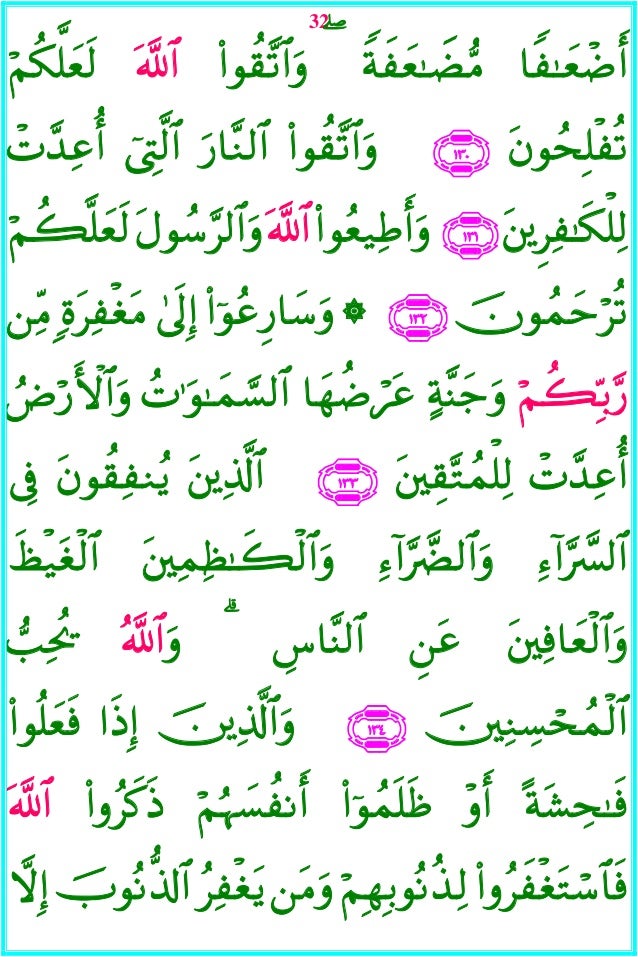 32 ۖ
أَضْعَـٰفًا مُّضَـٰعَفَةً وَٱتَّقُوا۟ ٱللَّهَ لَعَلَّكُمْ
تُفْلِحُونَ ١٣٠ وَٱتَّقُوا۟ ٱلنَّارَ ٱلَّتِىٓ أُعِدَّتْ
لِلْكَـٰفِرِينَ ١٣١ وَأَطِيعُوا۟ ٱللَّهَ وَٱلرَّسُولَ لَعَلَّكُمْ
تُرْحَمُونَ ١٣٢ ۞ وَسَارِعُوٓا۟ إِلَىٰ مَغْفِرَةٍ مِّن
رَّبِّكُمْ وَجَنَّةٍ عَرْضُهَا ٱلسَّمَـٰوَٰتُ وَٱلْأَرْضُ
أُعِدَّتْ لِلْمُتَّقِينَ ١٣٣ ٱلَّذِينَ يُنفِقُونَ فِى
ٱلسَّرَّآءِ وَٱلضَّرَّآءِ وَٱلْكَـٰظِمِينَ ٱلْغَيْظَ
وَٱلْعَافِينَ عَنِ ٱلنَّاسِ ۗ وَٱللَّهُ يُحِبُّ
ٱلْمُحْسِنِينَ ١٣٤ وَٱلَّذِينَ إِذَا فَعَلُوا۟
فَـٰحِشَةً أَوْ ظَلَمُوٓا۟ أَنفُسَهُمْ ذَكَرُوا۟ ٱللَّهَ
فَٱسْتَغْفَرُوا۟ لِذُنُوبِهِمْ وَمَن يَغْفِرُ ٱلذُّنُوبَ إِلَّا